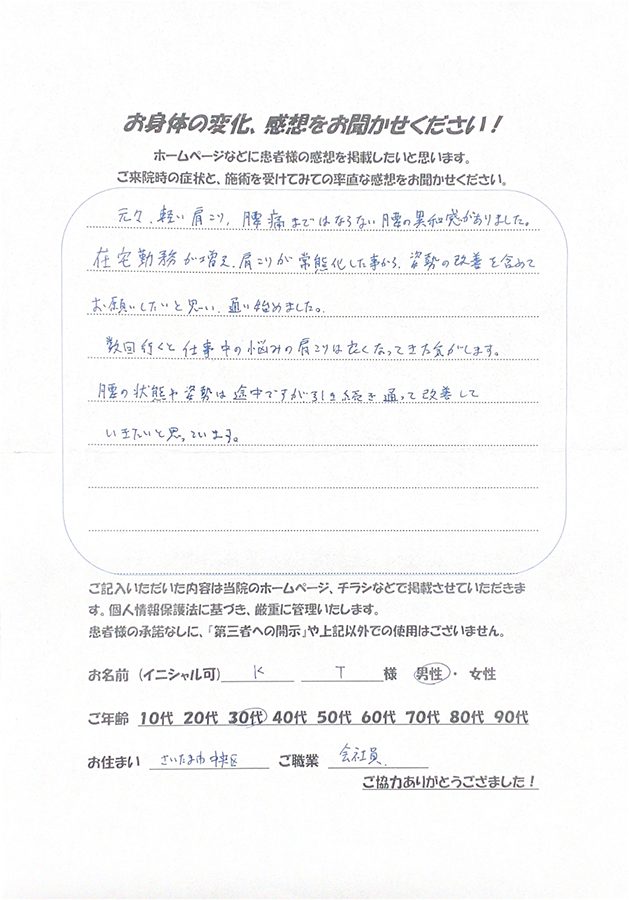 お身体の変化、感想をお聞かせください！
ホームページなどに患者様の感想を掲載したいと思います。
ご来院時の症状と、施術を受けてみての率直な感想をお聞かせください。
元々、軽い肩こり、腰痛まではならない腰の異和感がありました。
在宅勤務が増え、肩こりが常態化した事から、姿勢の改善を含めて
お願いしたいと思い、通い始めました。
数回行くと仕事中の悩みの肩こりは良くなってきた気がします。
腰の状態や姿勢は途中ですが引き続き通って改善して
いきたいと思っています。
ご記入いただいた内容は当院のホームページ、チラシなどで掲載させていただきま
す。個人情報保護法に基づき、厳重に管理いたします。
患者様の承諾なしに、「第三者への開示」や上記以外での使用はございません。
お名前（イニシャル可） K T 様 男性・女性
ご年齢 10代 20代 30代 40代 50代 60代 70代 80代 90代
お住まい さいたま市中央区 ご職業 会社員
ご協力ありがとうござました！